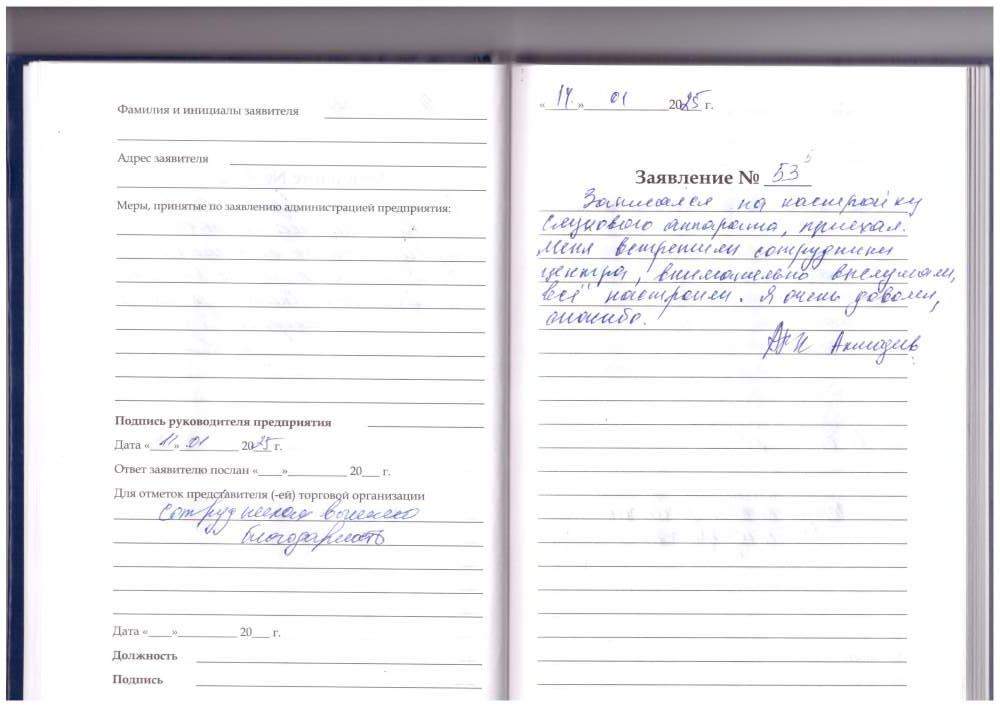 Фамилия и инициалы заявителя
Адрес заявителя
Меры, принятые по заявлению администрацией предприятия:
Подпись руководителя предприятия
Дата «11» 01 2025 г.
Ответ заявителю послан «____»__________ 20___ г.
Для отметок представителя (-ей) торговой организации
сотрудникам вынесена
благодарность
Дата «____»__________ 20___ г.
Должность
Подпись
«14» 01 2025 г.
Заявление № 53
Записался на настройку
слухового аппарата, приехал.
Меня встретили сотрудники
центра, внимательно выслушали,
всё настроили. Я очень доволен,
спасибо.